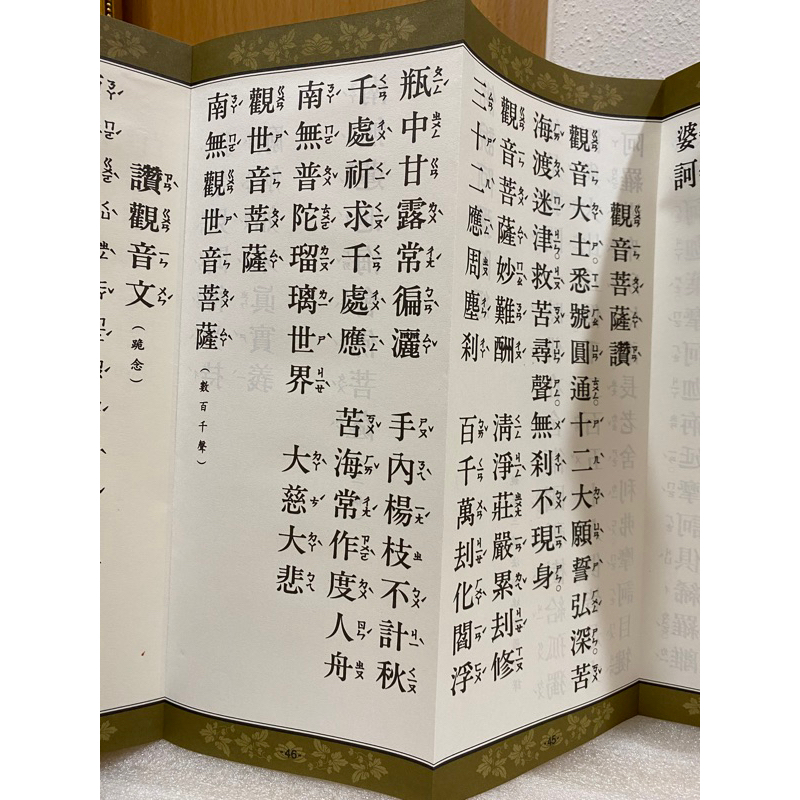 婆訶
觀音菩薩讚
觀音大士悉號圓通十二大願誓弘深苦
海渡迷津救苦尋聲無剎不現身
觀音菩薩妙難酬 清淨莊嚴累刦修
三十二應周塵剎 百千萬刦化閻浮
-45-
瓶中甘露常徧灑 手內楊枝不計秋
千處祈求千處應 苦海常作度人舟
南無普陀瑠璃世界 大慈大悲
觀世音菩薩
南無觀世音菩薩(數百千聲)
-46-
讚觀音文(跪念)